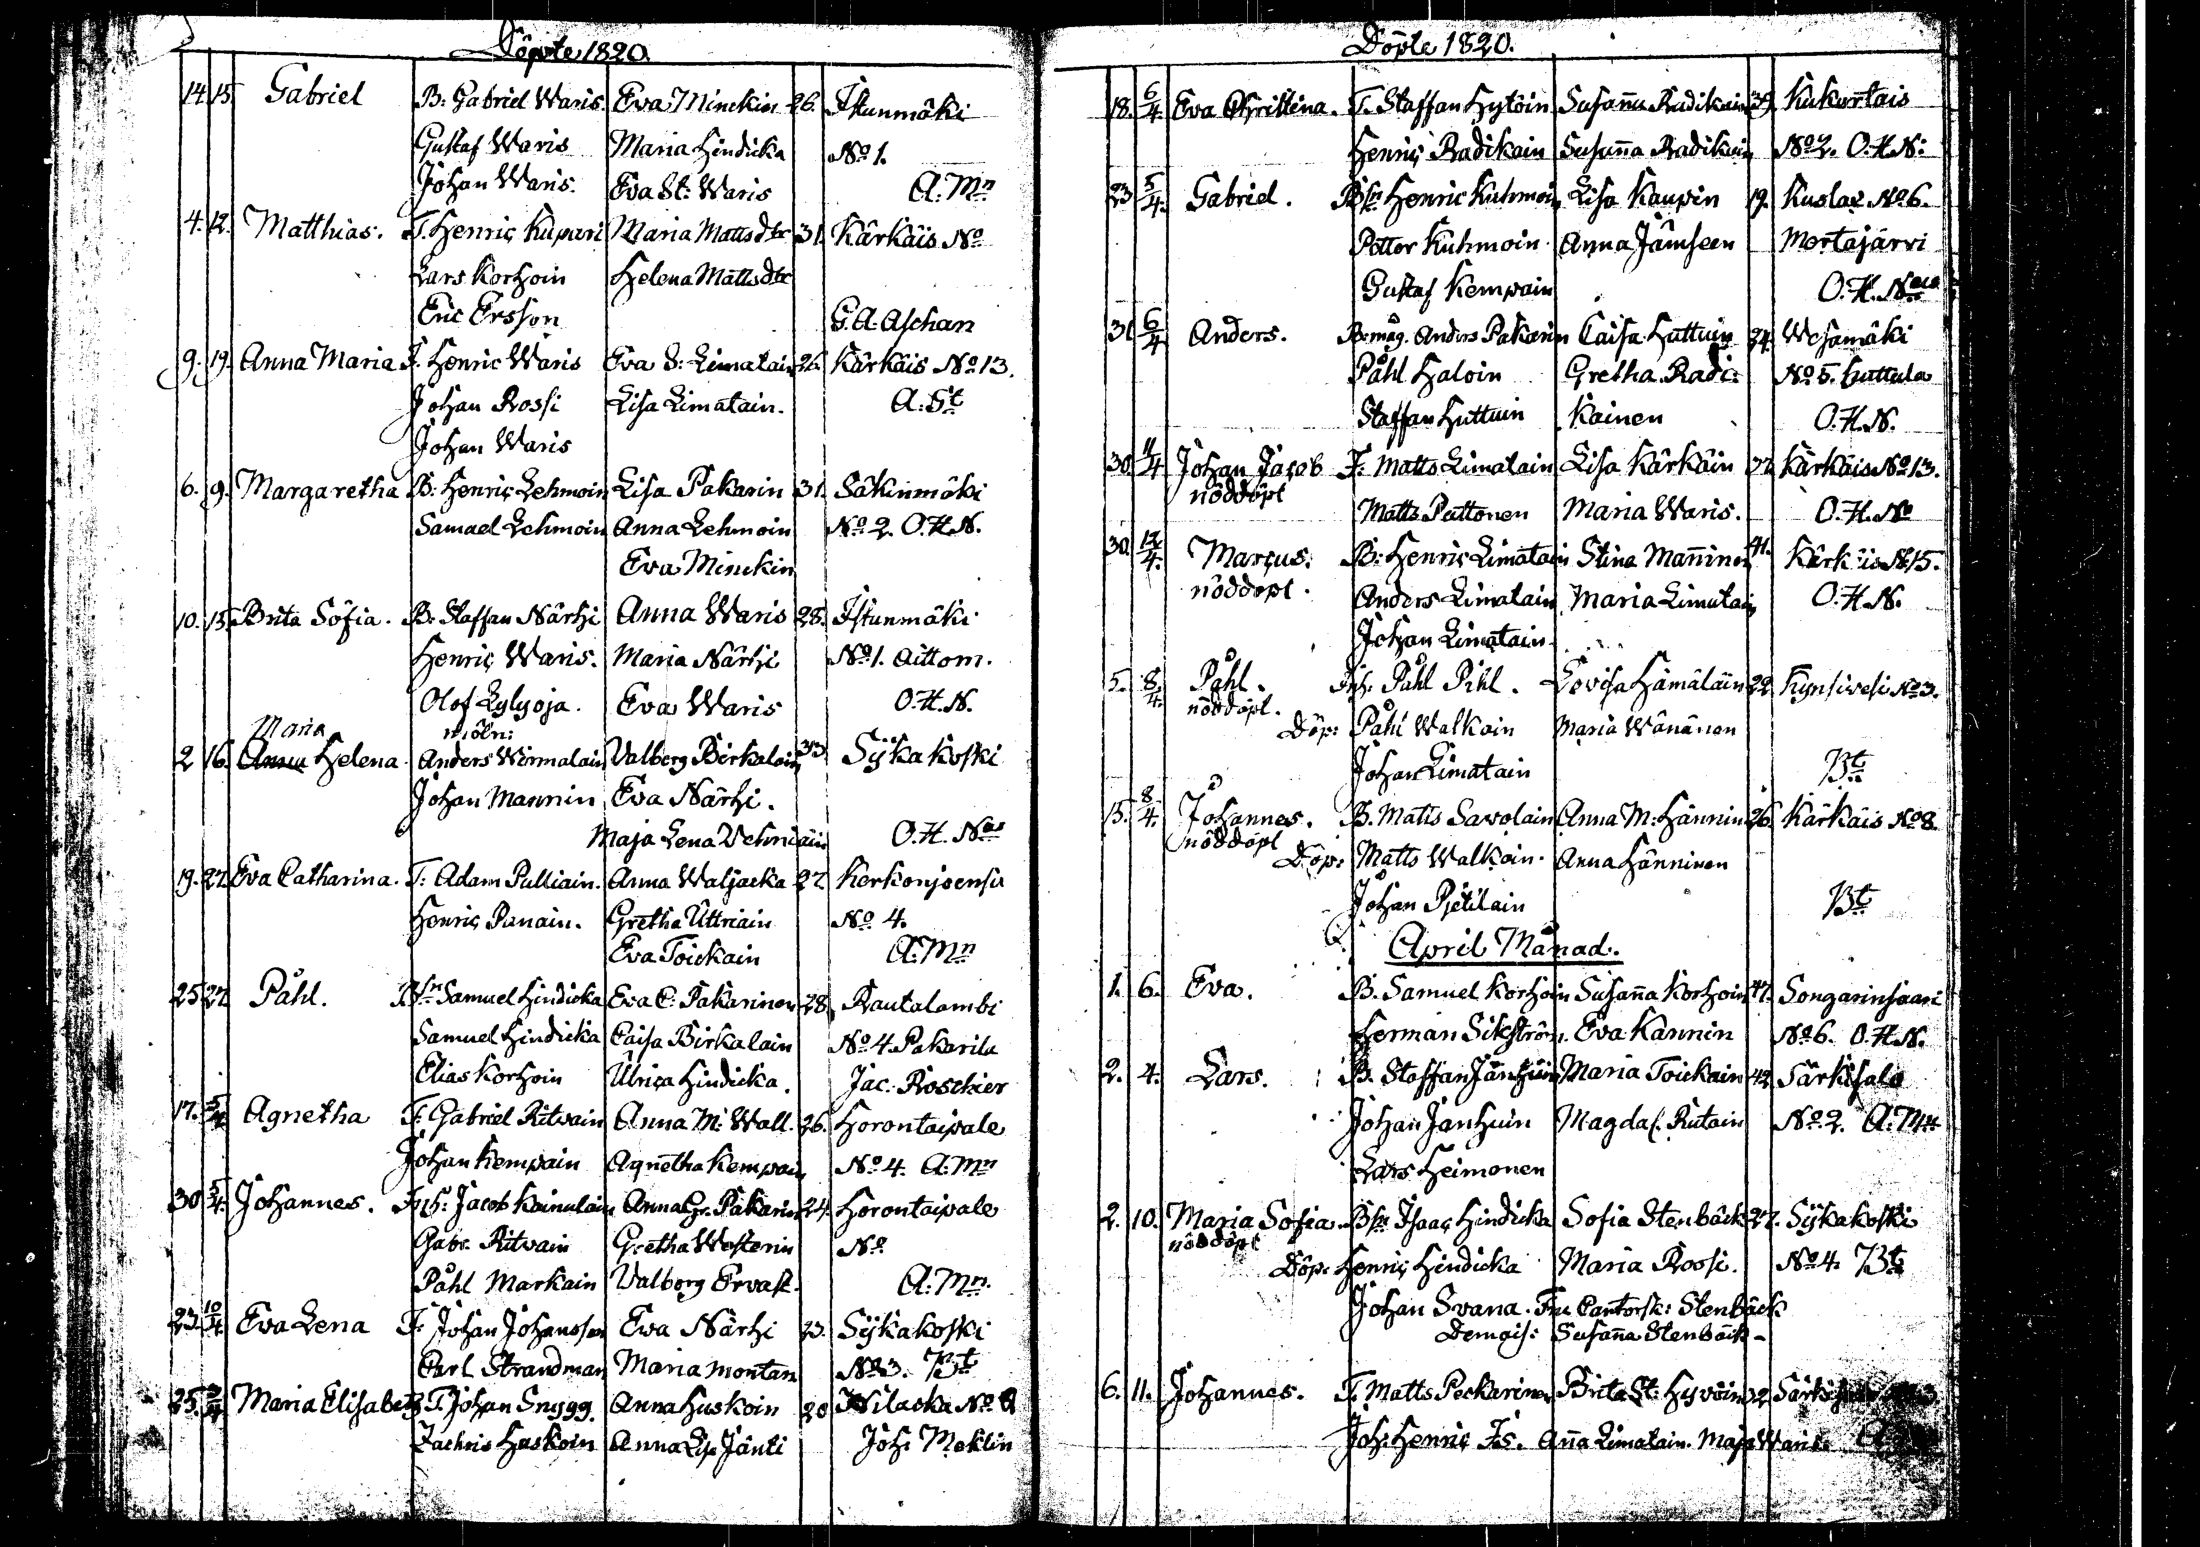 Döpte 1820.
14. 15. Gabriel B: Gabriel Waris. Eva Minckin 26. Istunmäki
Gustaf Waris Maria Hindicka No 1.
Johan Waris. Eva St: Waris A: Mn
4. 12. Matthias. T. Henric Kupari Maria Mattsdtr 31. Kärkäis No
Lars Korhoin Helena Mattsdtr
Eric Ersson G. A. Aschan
9. 19. Anna Maria I. Henric Waris Eva S: Limatain 26. Kärkäis No 13.
Johan Rossi Lisa Limatain. A: St
Johan Waris
6. 9. Margaretha B: Henric Lehmoin Lisa Pakarin 31. Säkinmäki
Samuel Lehmoin Anna Lehmoin No 2. O. H. N.
Eva Minckin
10. 15. Brita Sofia. B: Staffan Närhi Anna Waris 28. Istunmäki
Henric Waris. Maria Närhi No 1. Aittom.
Olof Lylyoja. Eva Waris O. H. N.
Maria möln:
2 16. Anna Helena Anders Wirmalain Valborg Birkalain 33. Sÿkakoski
Johan Mannin Eva Närhi.
Maja Lena Vehniäin O. H. Nus
19. 27. Eva Catharina. T: Adam Pulliain. Anna Waljacka 27. Kerkonjoensu
Henric Panain. Gretha Uttriain No 4.
Eva Toickain A: Mn
25 27. Påhl. Bsn Samuel Hindicka Eva C: Pakarinen 28. Rautalambi
Samuel Hindicka Caisa Birkalain No 4. Pakarila
Elias Korhoin Ulrica Hindicka. Jac. Roschier
17. 5/4 Agnetha T: Gabriel Ritvain Anna M: Wall. 26. Horontaipale
Johan Kempain Agnetha Kempain No 4. A: Mn
30 5/4. Johannes. Inh: Jacob Kainulain Anna Gr. Pakarin 24. Horontaipale
Gabr. Ritvain Gretha Westerin No
Påhl Markain Valborg Ervast. A: Mn.
23. 10/4 Eva Lena T: Johan Johansson Eva Närhi 23. Sÿkakoski
Carl Strandman Maria Montan No 3. Bt
25. Maria Elisabeth T. Johan Snygg. Anna Huskoin 20 Nilacka No
Zachris Huskoin Anna Lis. Jänti Joh: Meklin
Döpte 1820.
18. 6/4. Eva Christina. T. Staffan Hytöin Susanna Radikain 39. Kukertais
Henric Radikain Susanna Radikain No 2. O. H. N:
23 5/4. Gabriel. Bsn Henric Kuhmoin Lisa Kaupin 19. Kuslax No 6.
Petter Kuhmoin Anna Jämseen Mertajärvi
Gustaf Kempain O. H. Nus
31 6/4 Anders. B: måg. Anders Pakarin Caisa Huttuin 34. Wesamäki
Påhl Haloin Gretha Radi: No 5. Huttula
Staffan Huttuin kainen O. H. N.
30. 11/4 Johan Jacob I: Matts Limatain Lisa Kärkäin 37. Kärkäis No 13.
nöddöpt
Matts Puttonen Maria Waris. O. H. N
30. 12/4. Marcus. B: Henric Limatain Stina Manninen 41. Kärkäis No 15.
nöddöpt. Anders Limatain Maria Limatain O. H. N.
Johan Limatain
5. 8/4. Påhl. Inh: Påhl Pihl. Lovisa Hämäläin 22. Kynsivesi No 3.
nöddöpt.
Döp: Påhl Walkain Maria Wänänen
Johan Limatain Bt
15. 8/4. Johannes. B. Matts Savolain Anna M: Hännin 26. Kärkäis No 8.
nöddöpt
Döp: Matts Walkain. Anna Hänninen
Johan Pjetilain Bt
April Månad.
1. 6. Eva. B. Samuel Korhoin Susanna Korhoin 47. Songarinsaari
Herman Sikström Eva Kannin No 6. O. H. N.
2. 4. Lars. B. Staffan Janhuin Maria Toickain 42. Särkisalo
Johan Janhuin Magdal. Rutain No 2. A: Mn
Lars Heimonen
2. 10. Maria Sofia Bsn Isaac Hindicka Sofia Stenbäck 27. Sÿkakoski
nöddöpt
Döp: Henric Hindicka Maria Rossi. No 4. Bt
Johan Svana. Fru Cantorsk: Stenbäck
Demois: Susanna Stenbäck
6. 11. Johannes. T. Matts Peckarinen Brita St: Hyvöin 32
Joh: Henric Is. Anna Limatain. Maja Waris.